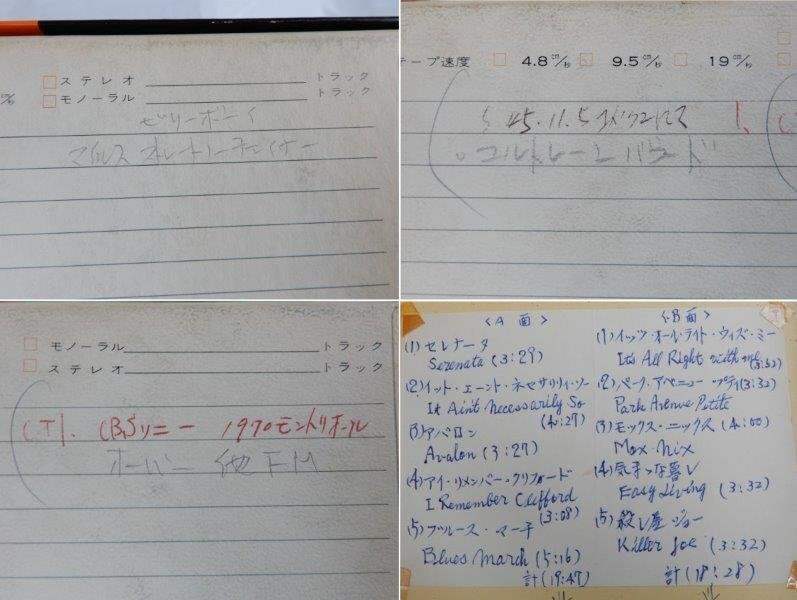 ステレオ トラック
モノーラル トラック
ゼリーボーイ
マイルス
テープ速度 4.8㎝/s 9.5㎝/s 19㎝/s
45.11.5
コルトレーン バラード
モノーラル トラック
ステレオ トラック
CBSソニー 1970モントリオール
他FM
<A面>
(1)セレナータ
Serenata (3:29)
(2)イット・エーント・ネセサリリィ・ソー
It Ain't Necessarily So
(4:27)
(3)アバロン
Avalon (3:27)
(4)アイ・リメンバー・クリフォード
I Remember Clifford
(3:08)
(5)ブルース・マーチ
Blues March (5:16)
計(19:47)
<B面>
(1)イッツ・オール・ライト・ウィズ・ミー
It's All Right with me
(3:52)
(2)パーク・アベニュー・プティ(3:32)
Park Avenue Petite
(3)モックス・ニックス (4:00)
Mox Nix
(4)気まゝな暮し
Easy Living (3:32)
(5)殺し屋ジョー
Killer Joe (3:32)
計(18:28)